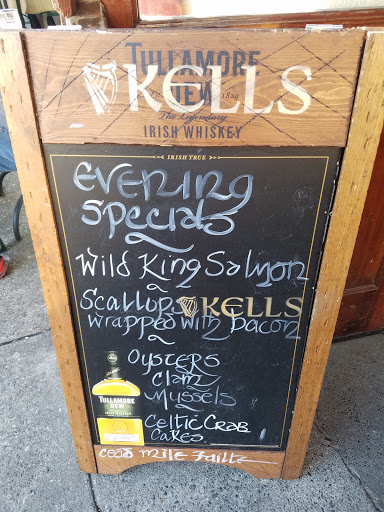 TULLAMORE
KELLS
EST. 1829
DEW
The Legendary
IRISH WHISKEY
IRISH TRUE
Evening
Specials
Wild King Salmon
Scallops KELLS
wrapped with bacon
Oysters
Clam
Mussels
TULLAMORE
DEW
Celtic Crab
Cakes
Cead mile Failte